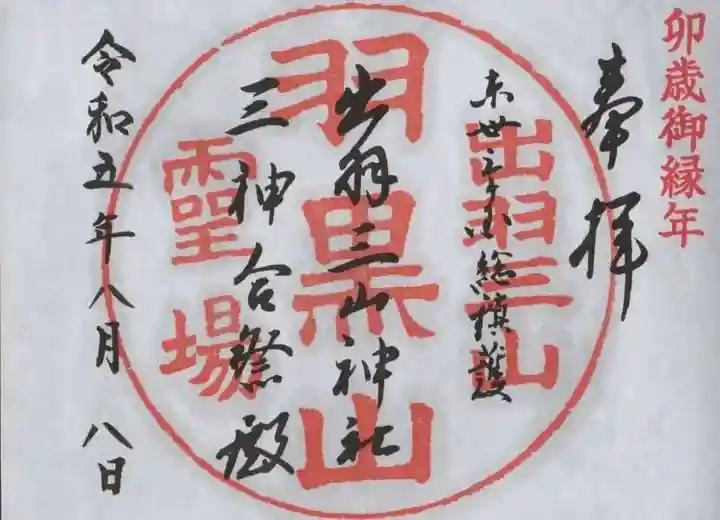 卯歳御縁年
奉拝
東丗三ヶ国総鎮護
出羽三山
出羽三山神社
羽黒山
三神合祭殿
靈場
令和五年八月八日